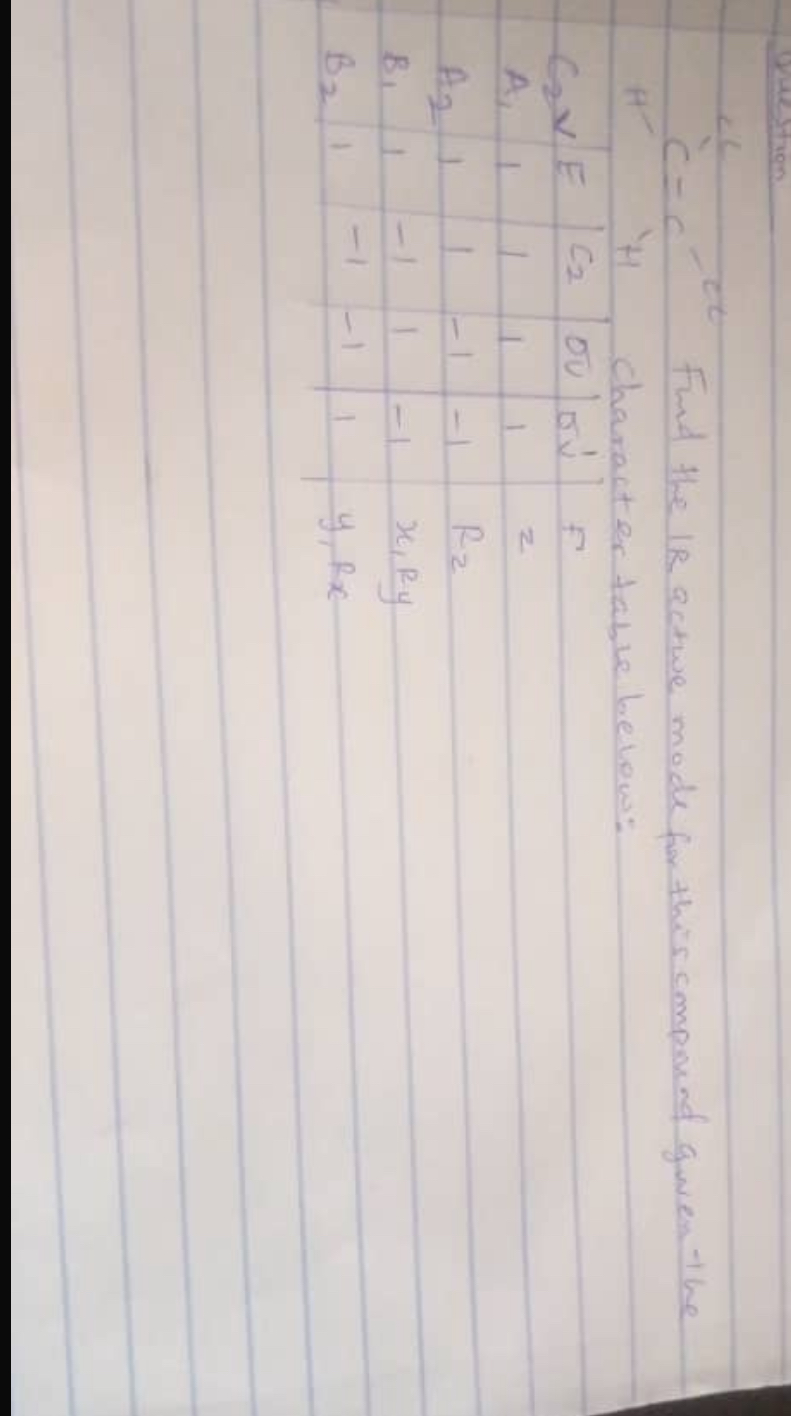 Question
cl cl
C = C Find the IR active mode for this compound given the
H H character table below:
C2v E C2 σv σv' Γ
A1 1 1 1 1 z
A2 1 1 -1 -1 Rz
B1 1 -1 1 -1 x, Ry
B2 1 -1 -1 1 y, Rx